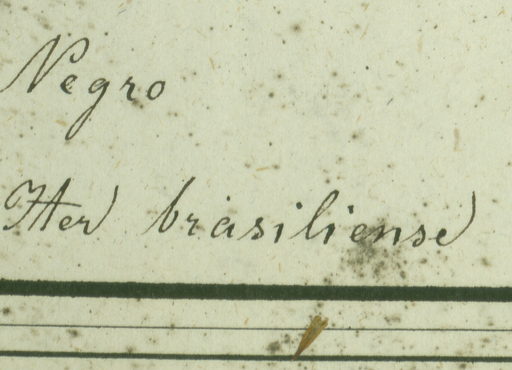 Negro
Iter brasiliense